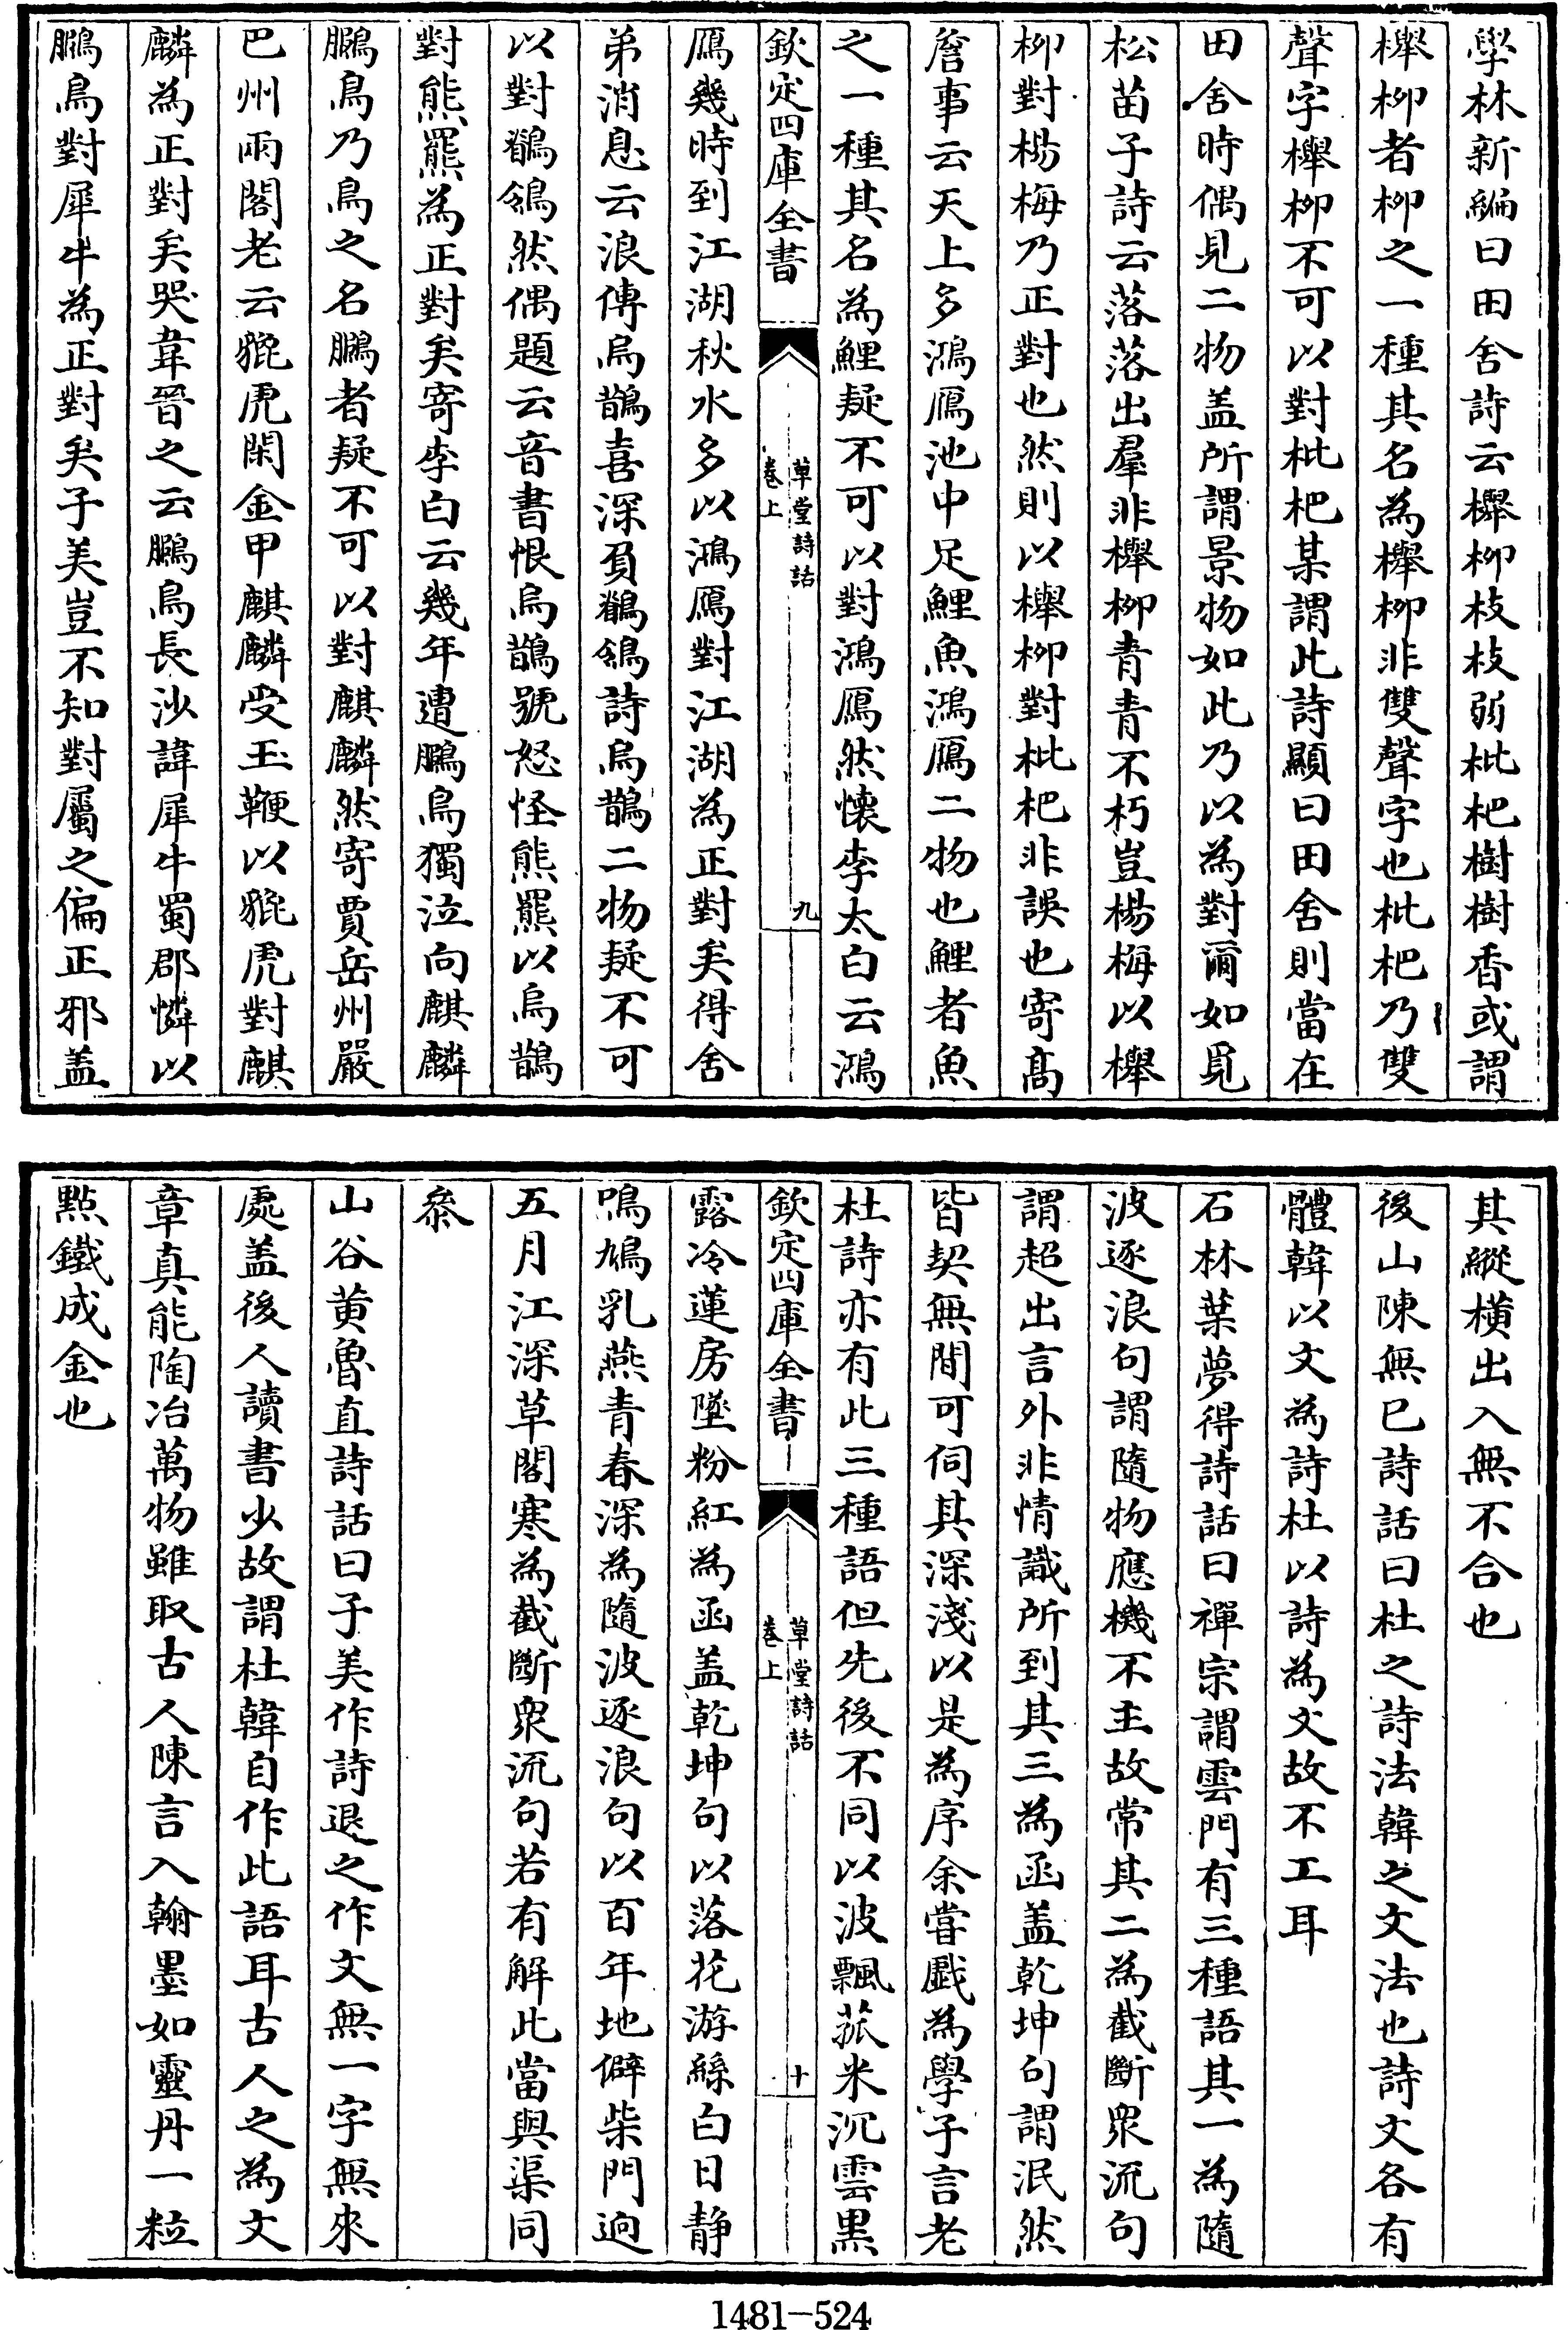 學林新編曰田舍詩云櫸柳枝枝弱枇杷樹樹香或謂
櫸柳者柳之一種其名為櫸柳非雙聲字也枇杷乃雙
聲字櫸柳不可以對枇杷某謂此詩顯曰田舍則當在
田舍時偶見二物盖所謂景物如此乃以為對爾如覓
松苗子詩云落落出羣非櫸柳青青不朽豈楊梅以櫸
柳對楊梅乃正對也然則以櫸柳對枇杷非誤也寄髙
詹事云天上多鴻鴈池中足鯉魚鴻鴈二物也鯉者魚
之一種其名為鯉疑不可以對鴻鴈然懐李太白云鴻
欽定四庫全書
草堂詩話
卷上
九
鴈幾時到江湖秋水多以鴻鴈對江湖為正對矣得舍
弟消息云浪傳烏鵲喜深負鶺鴒詩烏鵲二物疑不可
以對鶺鴒然偶題云音書恨烏鵲號怒怪熊羆以烏鵲
對熊羆為正對矣寄李白云幾年遭鵩鳥獨泣向麒麟
鵩鳥乃鳥之名鵩者疑不可以對麒麟然寄賈岳州嚴
巴州兩閣老云貔虎閑金甲麒麟受玉鞭以貔虎對麒
麟為正對矣哭韋晉之云鵩鳥長沙諱犀牛蜀郡憐以
鵩鳥對犀牛為正對矣子美豈不知對屬之偏正邪盖
其縱橫出入無不合也
後山陳無已詩話曰杜之詩法韓之文法也詩文各有
體韓以文為詩杜以詩為文故不工耳
石林葉夢得詩話曰禪宗謂雲門有三種語其一為隨
波逐浪句謂隨物應機不主故常其二為截斷衆流句
謂超出言外非情識所到其三為函盖乾坤句謂泯然
皆契無間可伺其深淺以是為序余嘗戲為學子言老
杜詩亦有此三種語但先後不同以波飄菰米沉雲黒
欽定四庫全書
草堂詩話
卷上
十
露冷蓮房墜粉紅為函盖乾坤句以落花游絲白日靜
鳴鳩乳燕青春深為隨波逐浪句以百年地僻柴門迥
五月江深草閣寒為截斷衆流句若有解此當與渠同
叅
山谷黄魯直詩話曰子美作詩退之作文無一字無來
處盖後人讀書少故謂杜韓自作此語耳古人之為文
章真能陶冶萬物雖取古人陳言入翰墨如靈丹一粒
點鐵成金也
1481-524